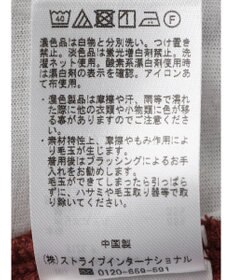 40
濃色品は白物と分別洗い。つけ置き
禁止。淡色品は蛍光増白剤禁止。洗
濯ネット使用。酸素系漂白剤使用時
は漂白剤の表示を確認。アイロンあ
て布使用。
・濃色製品は摩擦や汗、雨等で濡れ
た際に他の衣類や小物類に色が移
る事がありますのでご注意くださ
い。
・素材特性上、摩擦やもみ作用によ
り毛玉が生じます。
着用後はブラッシングによるお手
入れをお勧めします。
毛玉ができてしまったら引っぱら
ずに、ハサミや毛玉取り器等で取
り除いてください。
中国製
(株)ストライプインターナショナル
0120-659-591